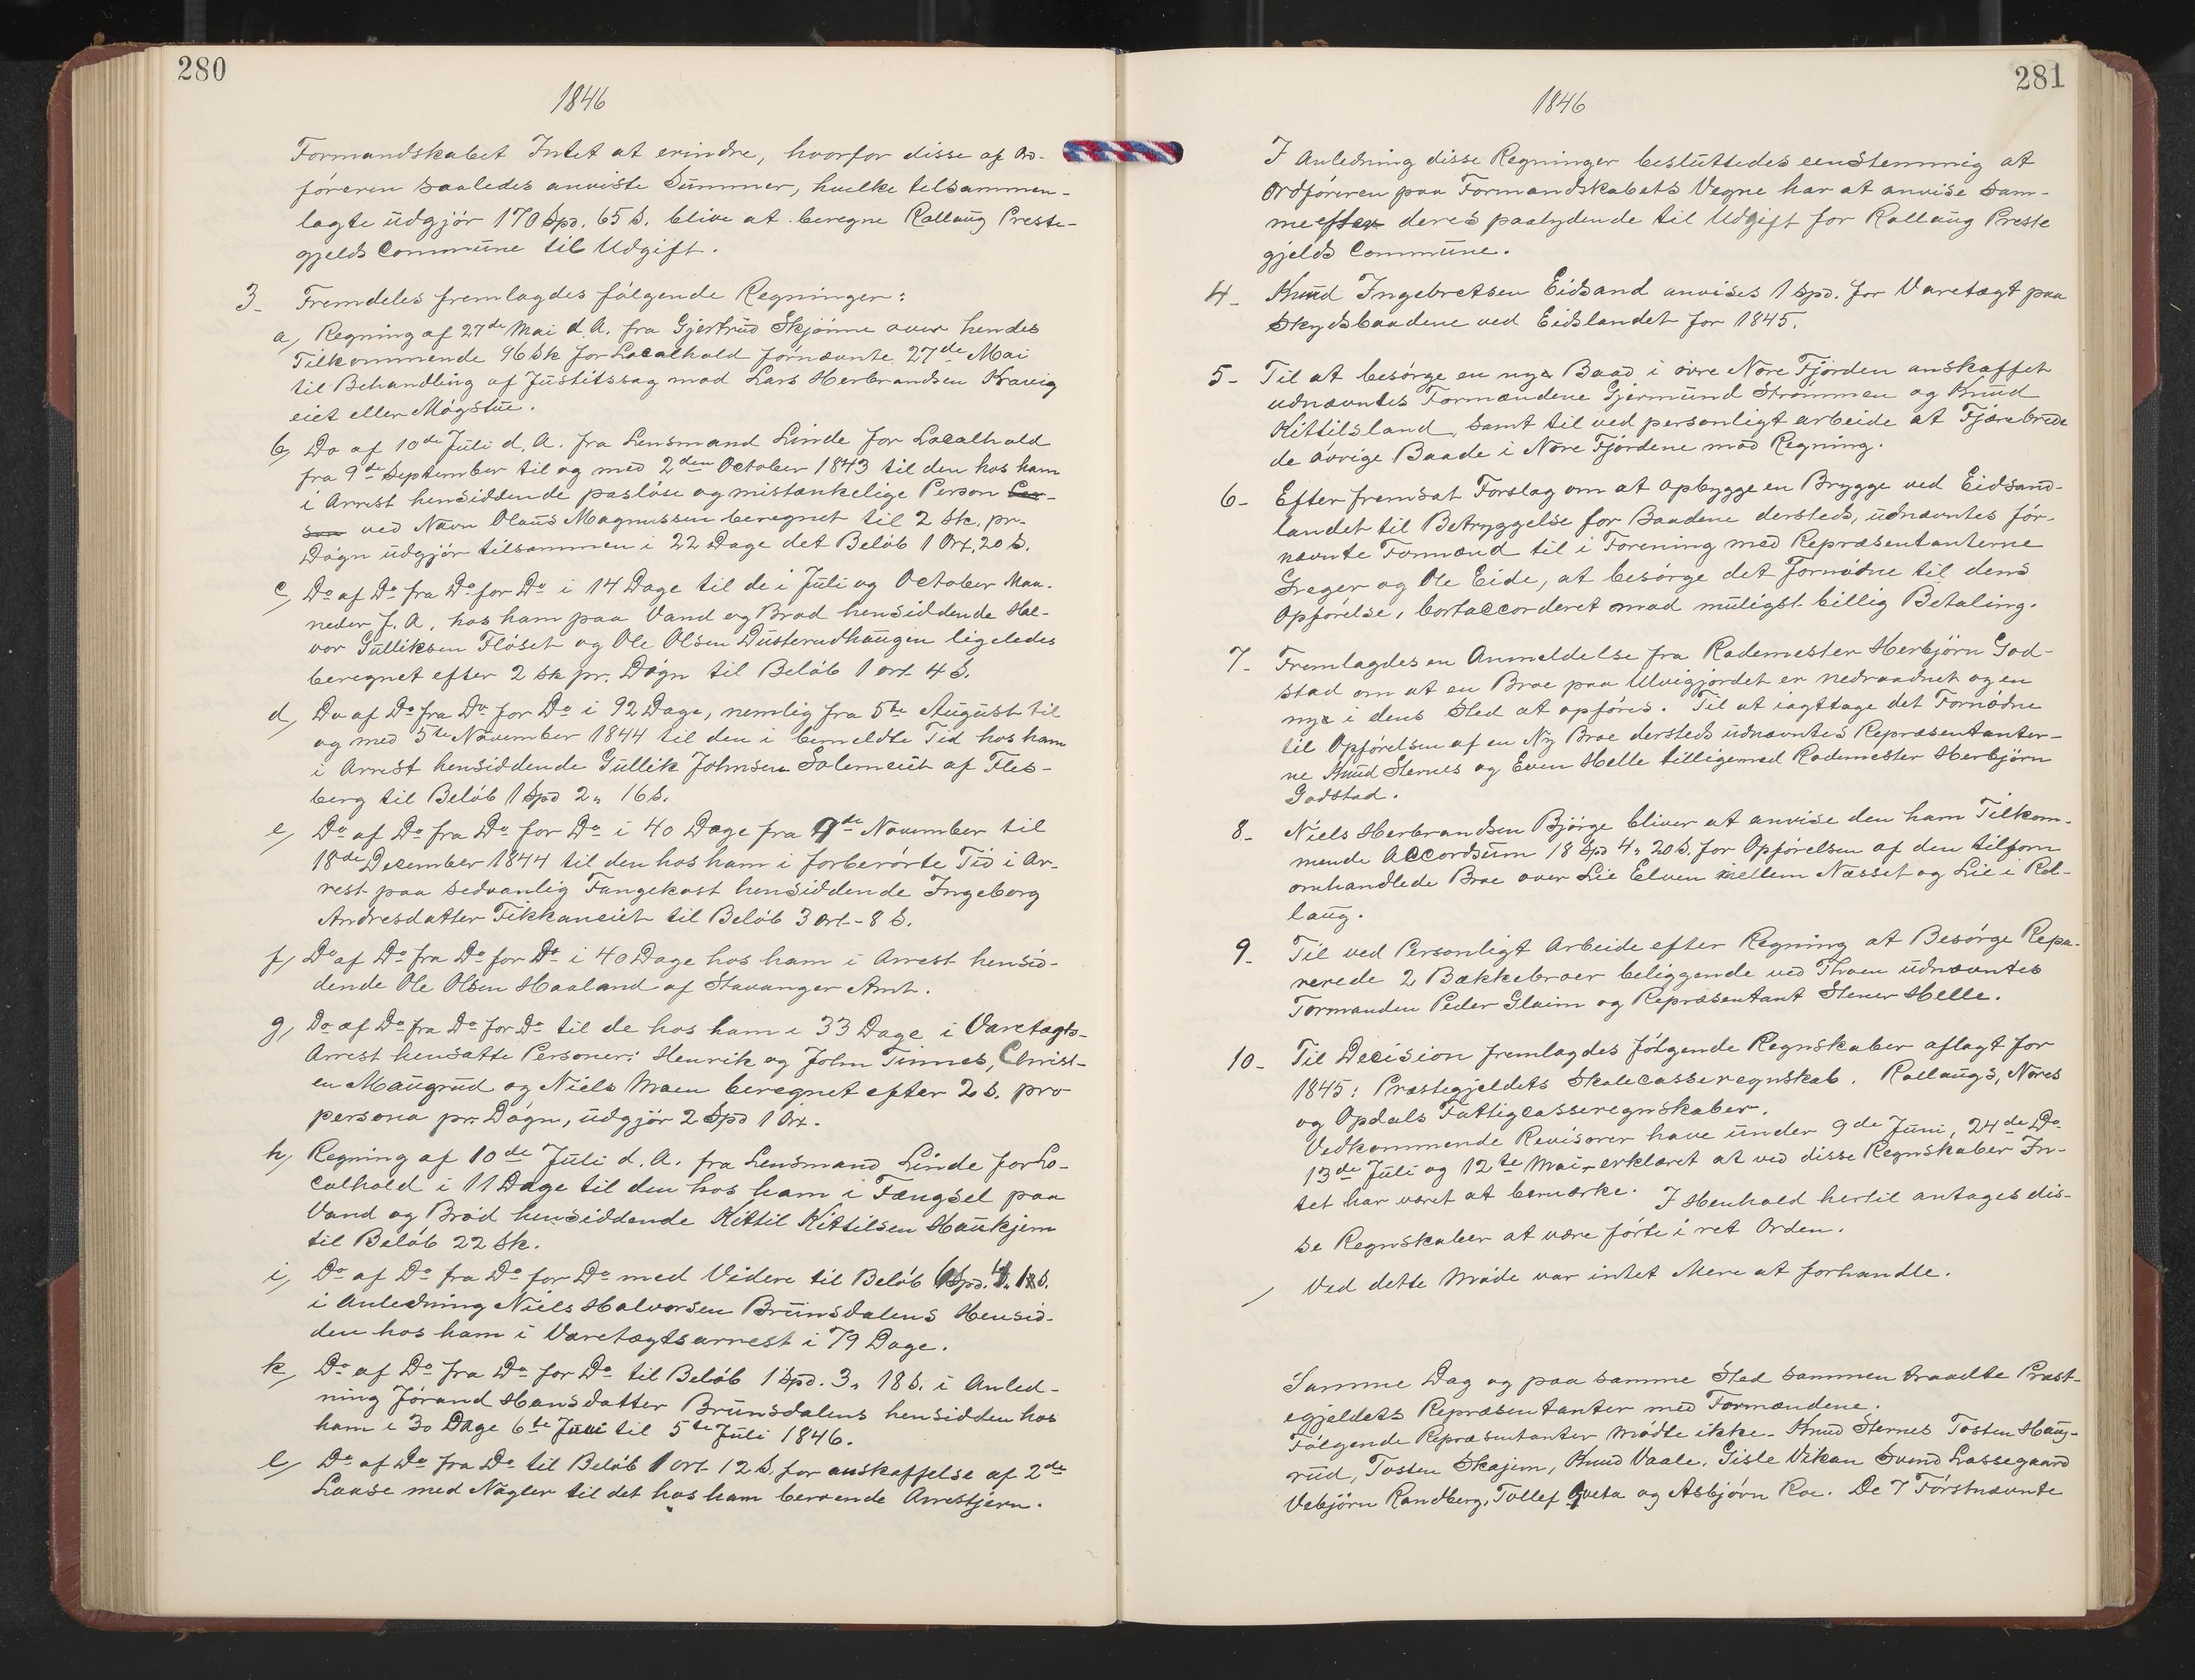 280
1846
Formandskabet Intet at erindre, hvorfor disse af Ord-
föreren saaledes anviste Summer, hvilke tilsammen-
lagte udgjör 170 Spd. 65 S. blive at beregne Rollaug Preste-
gjelds Commune til Udgift.
3_ Fremdeles fremlagdes følgende Regninger:
a, Regning af 27de Mai d. A. fra Gjertrud Skjönne over hendes
Tilkommende 96 Sk for Localhold förnævnte 27de Mai
til Behandling af Justitssag mod Lars Herbrandsen Kravig
eiet eller Mögstue.
b, Do af 10de Juli d. A. fra Lensmand Linde for Localhold
fra 9de September til og med 2den October 1843 til den hos ham
i Arrest hensiddende paslöse og mistænkelige Person Per-
son ved Navn Olaus Magnussen beregnet til 2 Sk. pr.
Dögn udgjör tilsammen i 22 Dage det Belöb 1 Ort. 20 S.
c, Do af Do fra Do for Do i 14 Dage til de i Juli og October Maa-
neder f. A. hos ham paa Vand og Brød hensiddende Hal-
vor Gulliksen Flöset og Ole Olsen Dusterudhaugen ligeledes
beregnet efter 2 Sk pr. Dögn til Belöb 1 ort 4 S.
d, Do af Do fra Do for Do i 92 Dage, nemlig fra 5te August til
og med 5te November 1844 til den i bemeldte Tid hos ham
i Arrest hensiddende Gullik Johnsen Solemeiet af Fles-
berg til Belöb 1 Spd 2„ 16 S.
e, Do af Do fra Do for Do i 40 Dage fra 9de November til
18de December 1844 til den hos ham i forberörte Tid i Ar-
rest paa sedvanlig Fangekost hensiddende Ingeborg
Andresdatter Fikkaneiet til Belöb 3 ort - 8 S.
f, Do af Do fra Do for Do i 40 Dage hos ham i Arrest hensid-
dende Ole Olsen Haaland af Stavanger Amt.
g, Do af Do fra Do for Do til de hos ham i 33 Dage i Varetægts-
Arrest hensatte Personer: Henrik og John Tinnes, Christ-
en Maugrud og Niels Moen beregnet efter 2 S. pro
persona pr. Dögn, udgjör 2 Spd 1 Ort.
h, Regning af 10de Juli d. A. fra Lensmand Linde for Lo-
calhold i 11 Dage til den hos ham i Fængsel paa
Vand og Bröd hensiddende Kittil Kittilsen Haukjem
til Belöb 22 Sk.
i, Do af Do fra Do for Do med Videre til Belöb Spd.
i Anledning Niels Halvorsen Brunsdalens Hensid-
den hos ham i Varetægtsarrest i 79 Dage.
k, Do af Do fra Do for Do til Belöb 1 Spd. 3„ 18 S. i Anled-
ning Jörand Hansdatter Brunsdalens hensidden hos
ham i 30 Dage 6te Juni til 5te Juli 1846.
l, Do af Do fra Do til Belöb 1 ort 12 S. for anskaffelse af 2de
Laase med Nögler til det hos ham beroende Arrestjern.
281
1846
I Anledning disse Regninger besluttedes eenstemmig at
Ordföreren paa Formandskabets Vegne har at anvise sam-
me efter deres paalydende til Udgift for Rollaug Preste
gjelds Commune.
4_ Knud Ingebretsen Eidsand anvises 1 Spd. for Varetægt paa
Skydsbaadene ved Eidslandet for 1845.
5_ Til at besörge en nye Baad i övre Nore Fjorden anskaffet
udnævntes Formændene Gjermund Strömmen og Knud
Kittilsland, samt til ved personligt arbeide at Tjærebrede
de övrige Baade i Nore Fjordene mod Regning.
6_ Efter fremsat Forslag om at opbygge en Brygge ved Eidsand-
landet til Betryggelse for Baadene dersteds, udnævntes för-
nævnte Formænd til i Forening med Repræsentanterne
Greger og Ole Eide, at besörge det Fornödne til dens
Opförelse, bortaccorderet mod muligst billig Betaling.
7_ Fremlagdes en Anmeldelse fra Rodemester Herbjörn God-
stad om at en Broe paa Ulvigjordet er nedraadnet og en
nye i dens Sted at opföres. Til at iagttage det Fornödne
til Opförelsen af en Ny Broe dersteds udnævntes Repræsentanter-
ne Knud Sternes og Even Helle tilligemed Rodemester Herbjörn
Godstad.
8_ Niels Herbrandsen Bjørge bliver at anvise den ham Tilkom-
mende Accordsum 18 Spd 4„ 20 S. for Opförelsen af den tilforn
omhandlede Broe over Lie Elven mellem Næsset og Lie i Rol-
laug.
9_ Til ved Personligt Arbeide efter Regning at Besörge Repa-
rerede 2 Bækkebroer beliggende ved Thoen udnævntes
Formanden Peder Glaim og Repræsentant Stener Helle.
10_ Til Decision fremlagdes fölgende Regnskaber aflagt for
1845: Præstegjeldets Skolecasseregnskab. Rollaugs, Nores
og Opdals Fattigcasseregnskaber.
Vedkommende Revisorer have under 9de Juni, 24de Do
13de Juli og 12te Mai erklæret at ved disse Regnskaber In-
tet har været at bemærke. I Henhold hertil antages dis-
se Regnskaber at være förte i ret Orden.
Ved dette Möde var intet Mere at forhandle.
Samme Dag og paa samme Sted sammen traadte Præst-
egjeldets Repræsentanter med Formændene.
Fölgende Repræsentanter mödte ikke. Knud Sternes Tosten Haug-
rud, Tosten Skajem, Knud Vaale, Gisle Vikan Svend Lassegaard
Vebjörn Randberg, Tollef Qveta og Asbjörn Roe. De 7 Förstnævnte